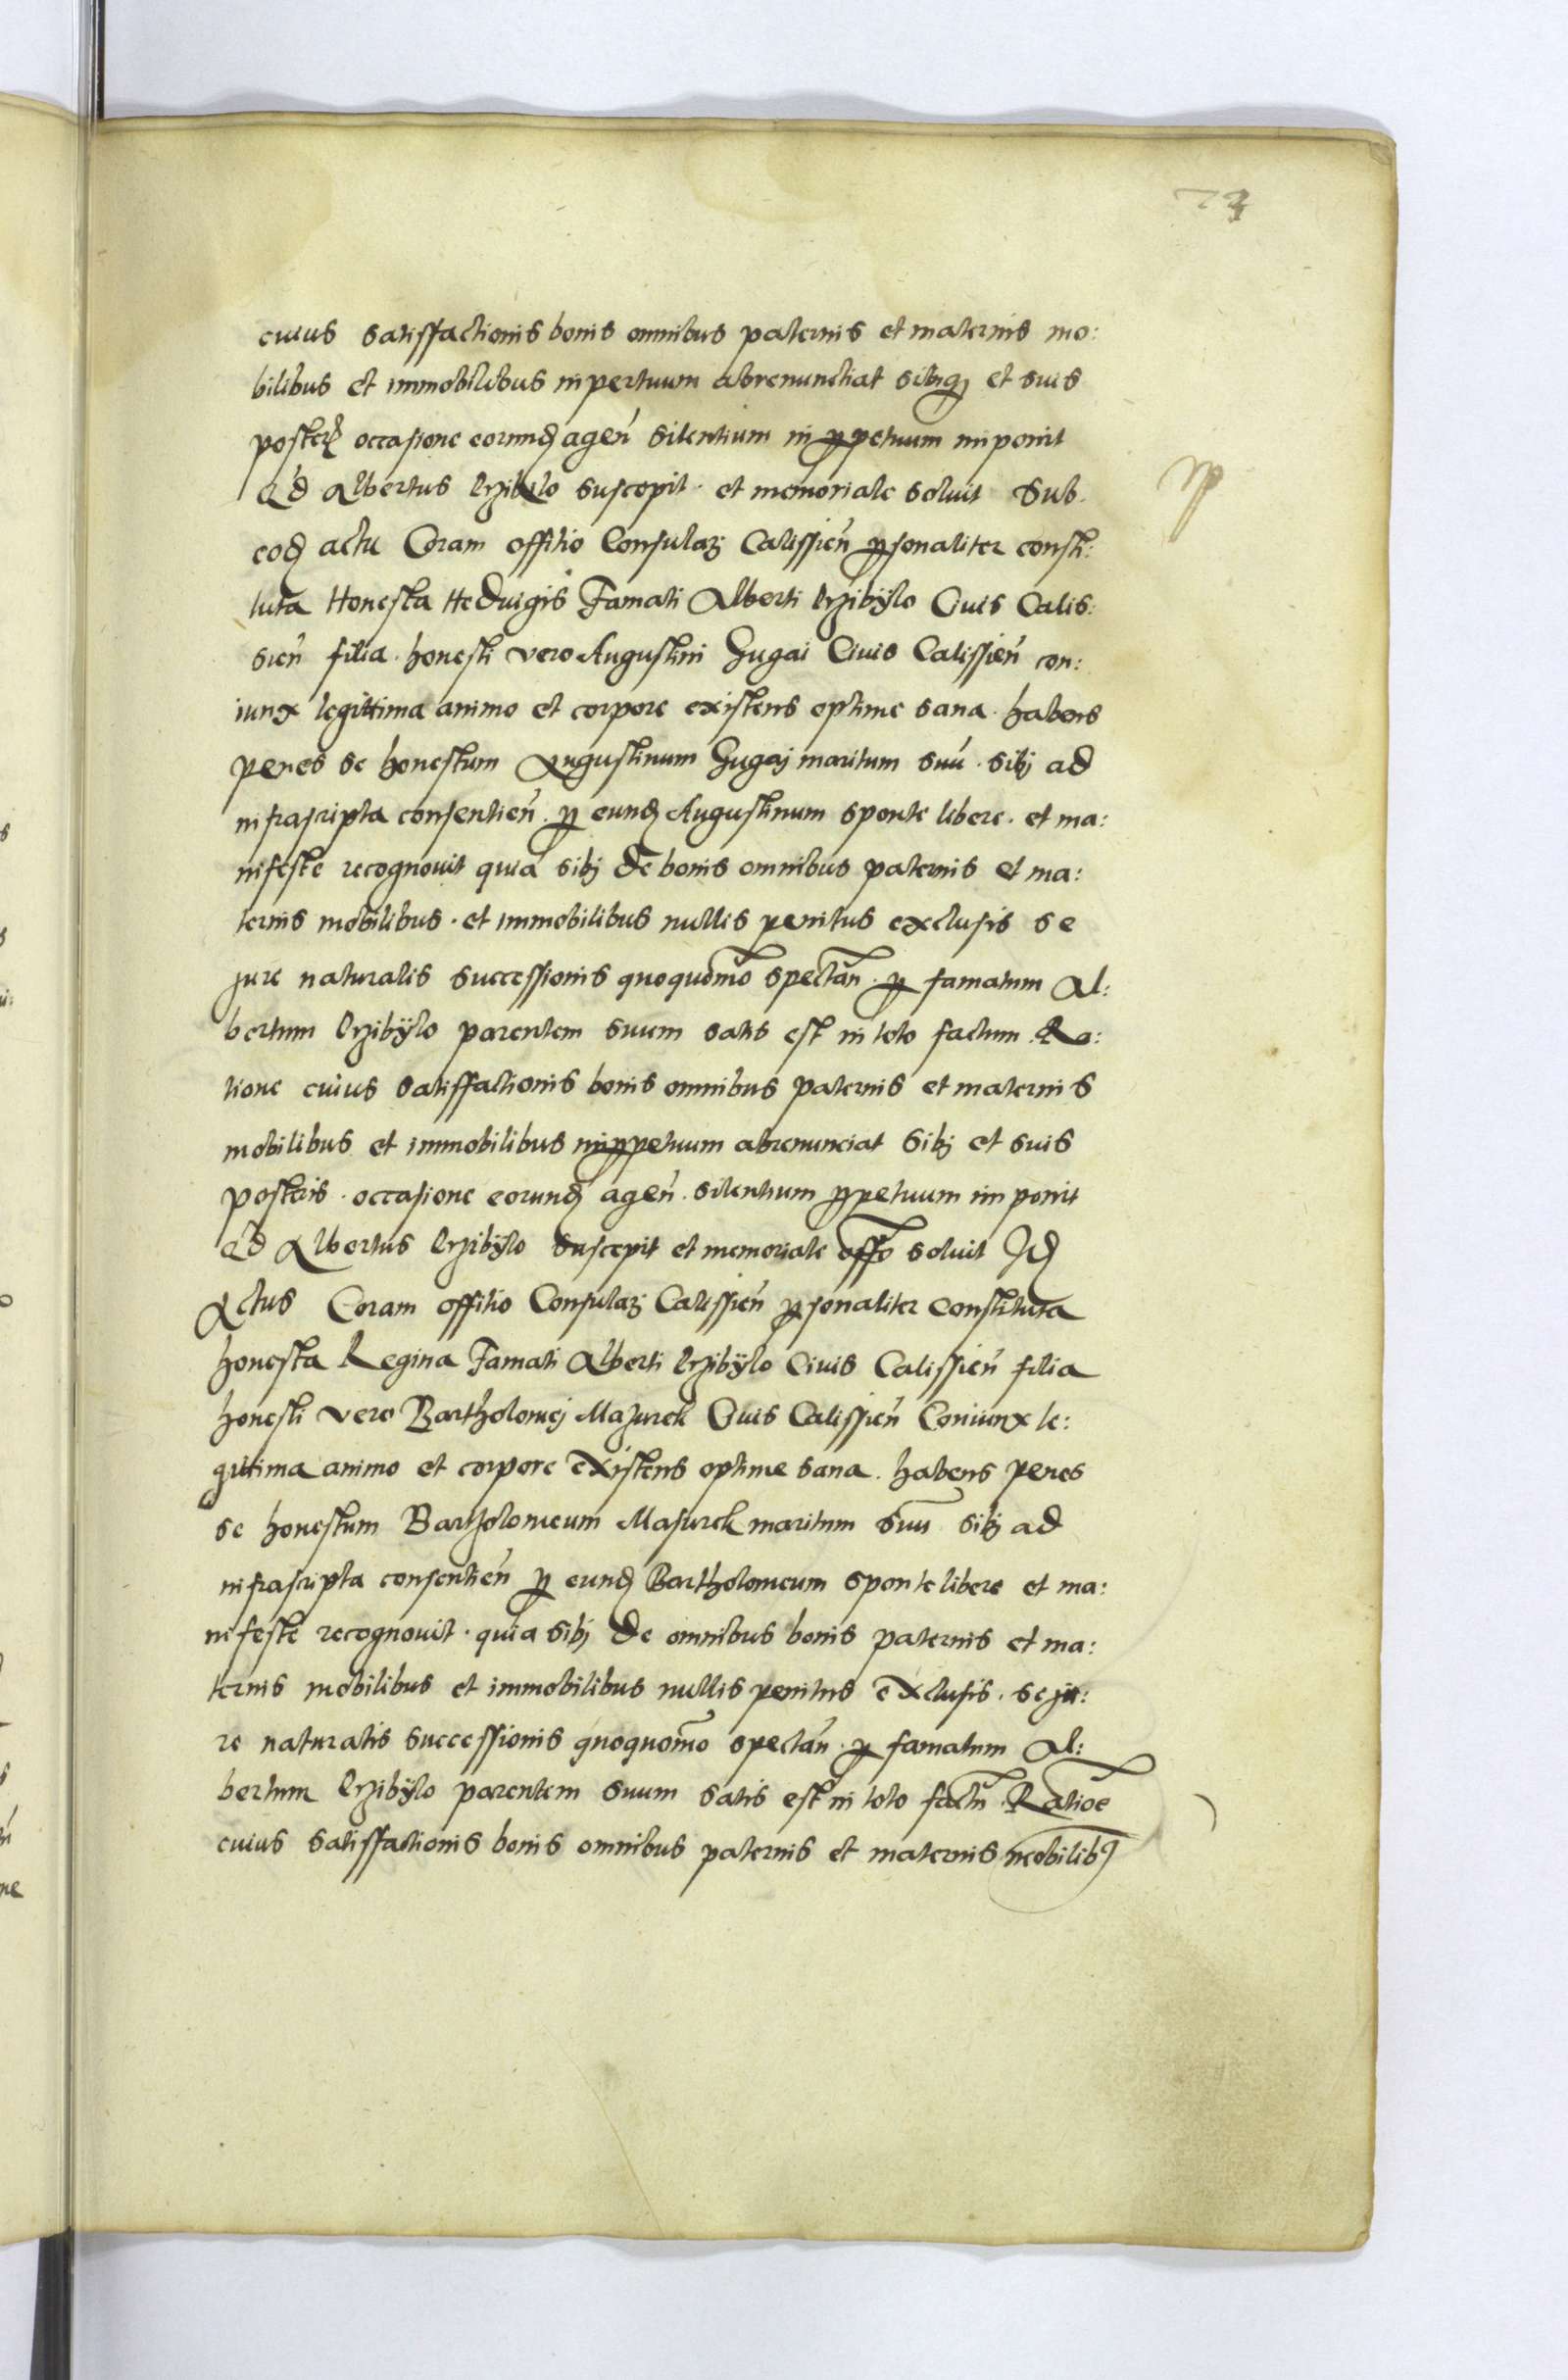 73
cuius satisffactionis bonis omnibus paternis et maternis mo:
bilibus et immobilibus inpertuum abrenunctiat sibiqʒ et suis
posterꝭ occasione eorundꝫ ageñ silentium in ꝑpetuum imponit
Qd Albertus suscepit · et memoriale soluit Sub
eodꝫ actu Coram offitio Consulaꝫ Calissieñ ꝑsonaliter consti:
tuta Honesta Heduigis Famati Alberti Czibÿlo Ciuis Calis:
sieñ filia · honesti vero Augustini Gugai Ciuis Calissieñ con:
iunx legittima animo et corpore existens optime sana · habens
penes se honestum Augustinum Gugaj maritum suũ · sibj ad
infrascripta consentieñ · ꝑ eundꝫ Augustinum sponte libere · et ma:
nifeste recognouit quia sibj de bonis omnibus paternis et ma:
ternis mobilibus · et immobilibus nullis penitus exclusis se
jure naturalis successionis quoquomõ spectañ · ꝑ famatum Al:
bertum Czibÿlo parentem suum satis est in toto factum Ra:
tione cuius satisffactionis bonis omnibus paternis et maternis
mobilibus et immobilibus inꝑpetuum abrenunciat sibj et suis
posteris · occasione eorundꝫ ageñ · silentium ꝑpetuum imponit
Qd Albertus Czibÿlo suscepit et memoriale offo soluit Idꝫ
Actus Coram offitio Consulaꝫ Calissieñ ꝑsonaliter constituta
honesta Regina Famati Alberti Czibÿlo Ciuis Calissieñ filia
honesti vero Bartholomej Mazurek Ciuis Calissieñ Coniunx le:
gittima animo et corpore existens optime sana · habens penes
se honestum Bartholomeum Masurek maritum suũ sibj ad
infrascripta consentieñ ꝑ eundꝫ Bartholomeum sponte libere et ma:
nifeste recognouit · quia sibj de omnibus bonis paternis et ma:
ternis mobilibus et immobilibus nullis penitus exclusis · se ju:
re naturalis successionis quoquomõ spectañ · ꝑ famatum Al:
bertum Czibÿlo parentem suum satis est in toto factũ Ratiõe
cuius satisffactionis bonis omnibus paternis et maternis mobilibꝰ